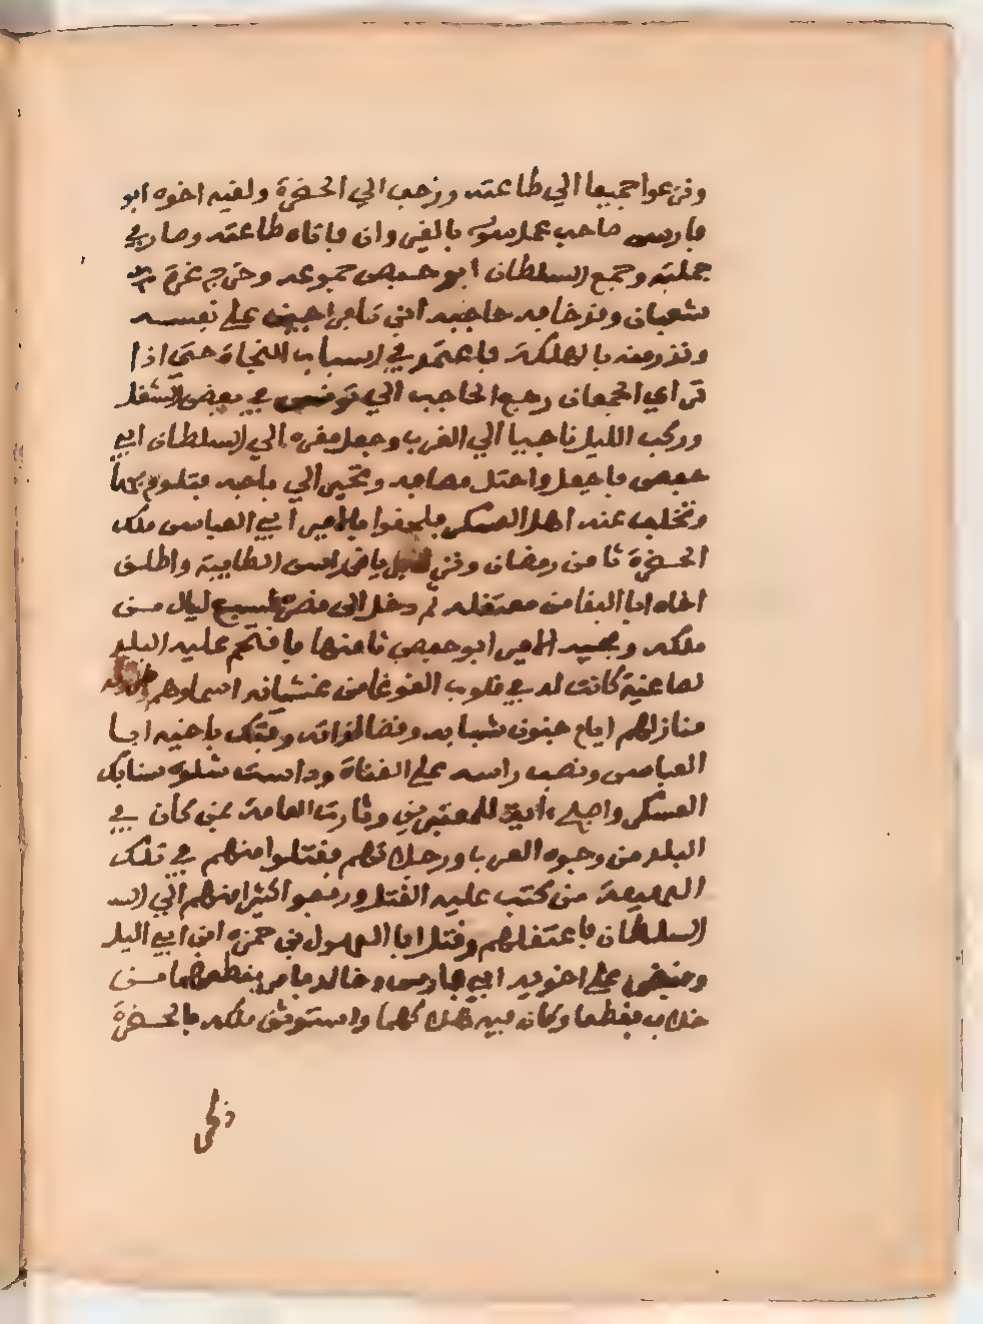 ونزعوا جميعا الي طاعته وزحف الي الحضرة ولقيه اخوه ابو
فارس صاحب عمل سوسة بالقيروان فاتاه طاعته وصار في
جملته وجمع السلطان ابو حفص جموعه وخرج غرة
شعبان وقد خافه حاجبه ابن تافراجين على نفسه
ونذر منه بالهلكة فاعتمد في اسباب النجاة حتى اذا
تراي الجمعان رجع الحاجب الي تونس في بعض الشغل
وركب الليل ناجيا الي الغرب وجعل مفره الي السلطان ابي
حفص فاجفل واختل مصافه وتحيز الي باجه فتلوم بها
وتخلف عنه اهل العسكر فلحقوا بالامير ابي العباس ملك
الحضرة ثامن رمضان ونزل برياض راس الطابية واطلق
اخاه ابا البقا من معتقله ثم دخل الى قصره لسبع ليال من
ملكه وصحبه الامير ابو حفص ثامنها فاقتحم عليه البلد
لصاغية كانت له في قلوب الغوغا من غشيانه اسمارهم
منازلهم ايام جنون شبابه وقضا لذاته وفتك باخيه ابا
العباس ونصب راسه على القناة وداست شلوه سنابك
العسكر واصبح اية للمعتبرين وثارت العامة بمن كان في
البلد من وجوه العرب ورجالاتهم فقتلوا منهم في تلك
الهيعة من كتب عليه القتل ورفعوا كثيرا منهم الي الس
السلطان فاعتقلهم وقتل ابا الهول بن حمزه ابن ابي اليل
وقبض على اخويه ابي فارس وخالد فامر بقطعهما من
خلاف فقطعا وكان فيه هلاكهما واستوثق ملكه بالحضرة